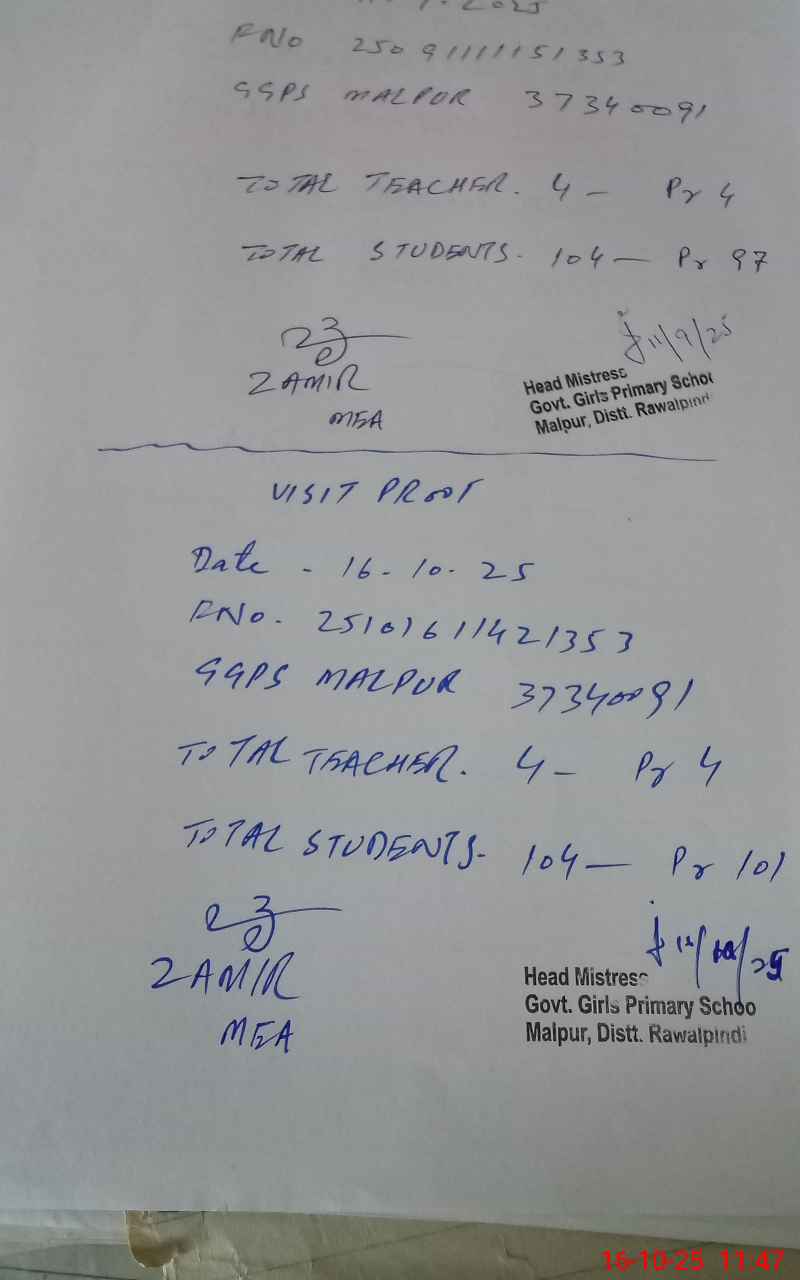 9.2025
FNo 25091111151353
GGPS MALPUR 37340091
TOTAL TEACHER. 4 - Pr 4
TOTAL STUDENTS. 104 - Pr 97
11/9/25
ZAMIR
MEA
Head Mistress
Govt. Girls Primary Schoo
Malpur, Distt. Rawalpindi
VISIT PROOF
Date - 16-10-25
FNo. 25101611421353
GGPS MALPUR 37340091
TOTAL TEACHER. 4 - Pr 4
TOTAL STUDENTS- 104 - Pr 101
ZAMIR
MEA
Head Mistress
Govt. Girls Primary Schoo
Malpur, Distt. Rawalpindi
16-10-25 11:47